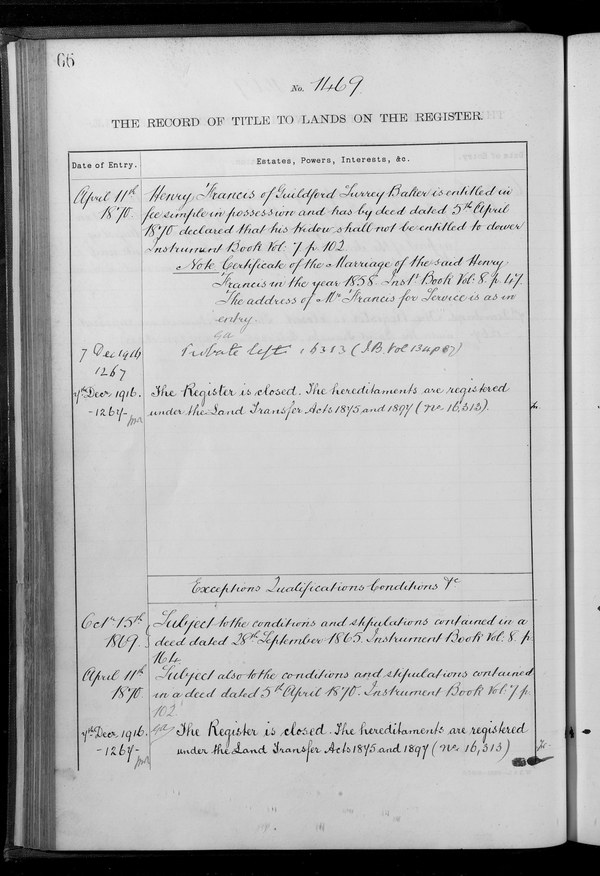 66
No. 1469.
THE RECORD OF TITLE TO LANDS ON THE REGISTER.
Date of Entry.
Estates, Powers, Interests, &c.
April 11th
1870.
Henry Francis of Guildford Surrey Baker is entitled in
fee simple in possession and has by deed dated 5th April
1870 declared that his Widow shall not be entitled to dower
Instrument Book Vol: 7 p. 102
Note Certificate of the Marriage of the said Henry
Francis in the year 1858. Inst: Book Vol: 8. p. 47.
The address of Mr Francis for Service is as in
entry.
7 Dec 1916
1267
Probate left 16313 (I.B. Vol 134 p 67)
7th Decr 1916.
-1267-
The Register is closed. The hereditaments are registered
under the Land Transfer Acts 1875 and 1897 (No 16,313).
Exceptions Qualifications Conditions &c
Octr 15th
1869.
Subject to the conditions and stipulations contained in a
deed dated 28th September 1865. Instrument Book Vol: 8. p
164.
April 11th
1870.
Subject also to the conditions and stipulations contained
in a deed dated 5th April 1870. Instrument Book Vol: 7 p.
102.
7th Decr 1916.
-1267-
The Register is closed. The hereditaments are registered
under the Land Transfer Acts 1875 and 1897 (No 16,313)